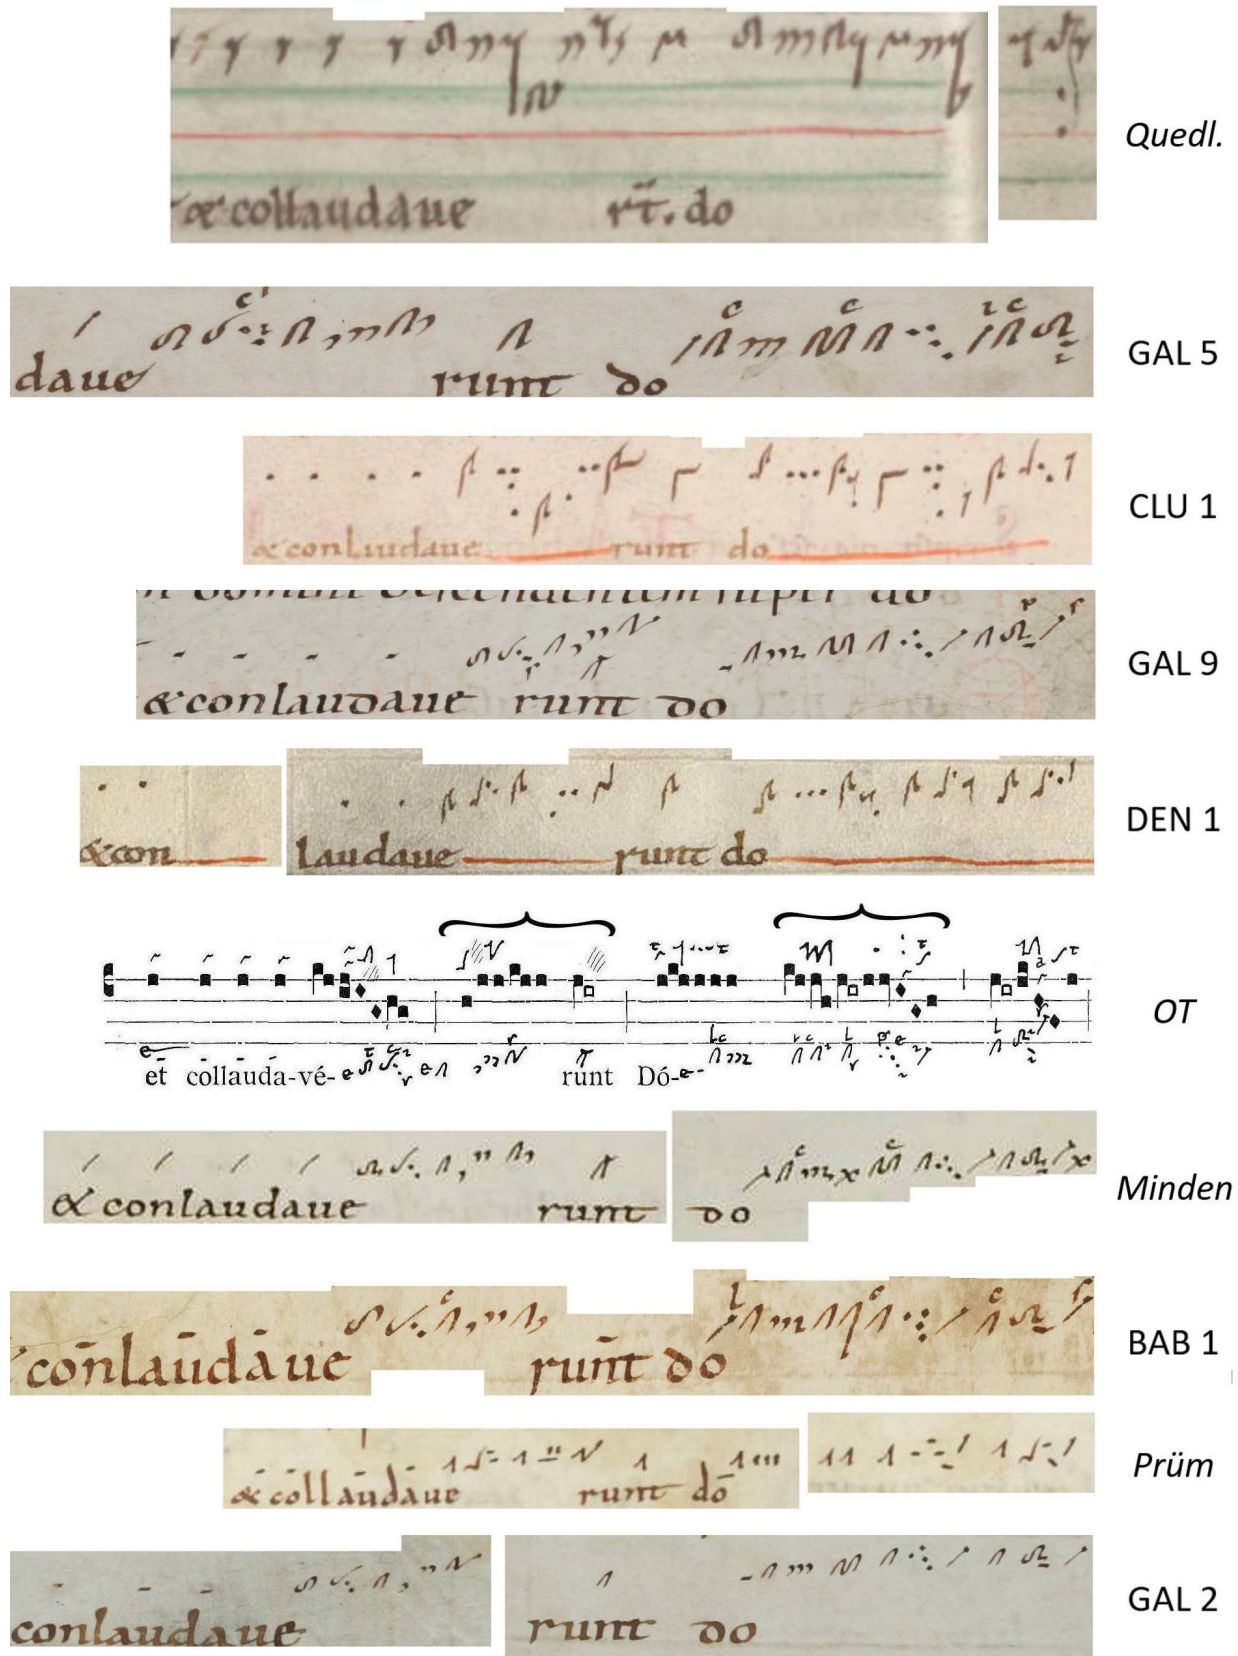 & collaudaue rt̄. do
Quedl.
daue runt do
GAL 5
& conlaudaue runt do
CLU 1
& conlaudaue runt do
GAL 9
& con laudaue runt do
DEN 1
et collauda-vé- runt Dó-
OT
& conlaudaue runt do
Minden
conlaudaue runt do
BAB 1
& collaudaue runt do
Prüm
conlaudaue runt do
GAL 2